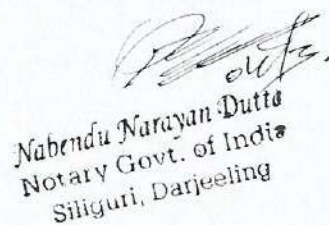 Nabendu Narayan Dutta
Notary Govt. of India
Siliguri, Darjeeling